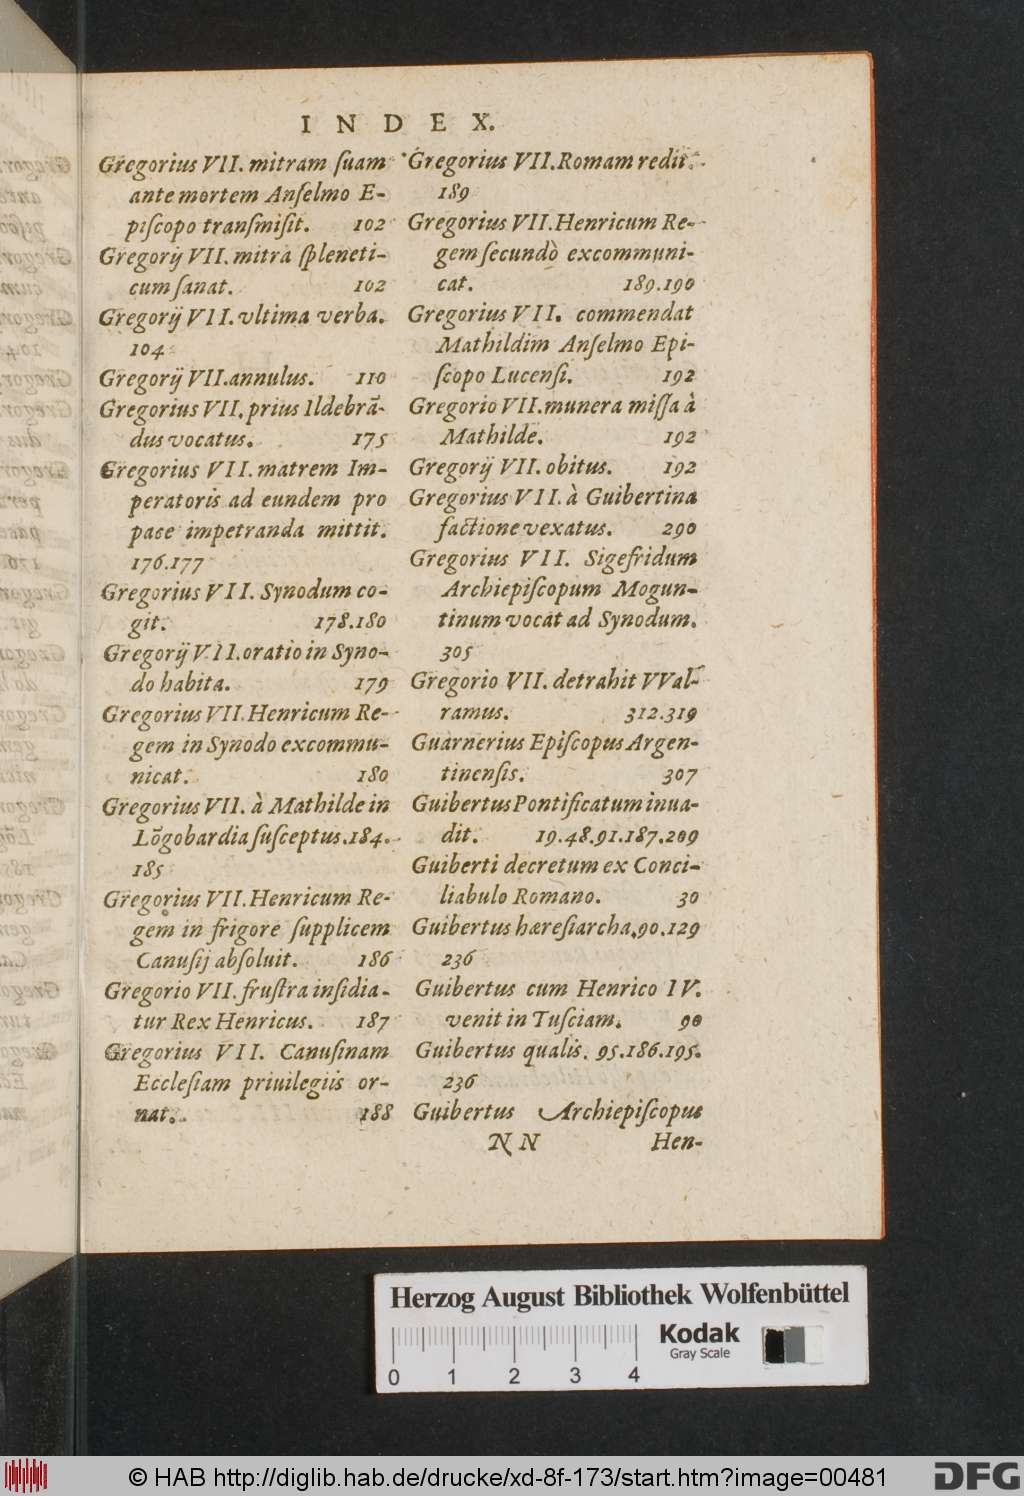 INDEX.
Gregorius VII. mitram ſuam
ante mortem Anſelmo E-
piſcopo tranſmiſit. 102
Gregorij VII. mitra ſpleneti-
cum ſanat. 102
Gregorij VII. vltima verba.
104
Gregorij VII. annulus. 110
Gregorius VII. prius Ildebrā-
dus vocatus. 175
Gregorius VII. matrem Im-
peratoris ad eundem pro
pace impetranda mittit.
176.177
Gregorius VII. Synodum co-
git. 178.180
Gregorij VII. oratio in Syno-
do habita. 179
Gregorius VII. Henricum Re-
gem in Synodo excommu-
nicat. 180
Gregorius VII. à Mathilde in
Lōgobardia ſuſceptus. 184.
185
Gregorius VII. Henricum Re-
gem in frigore ſupplicem
Canuſij abſoluit. 186
Gregorio VII. fruſtra inſidia-
tur Rex Henricus. 187
Gregorius VII. Canuſinam
Eccleſiam priuilegiis or-
nat. 188
Gregorius VII. Romam redit.
189
Gregorius VII. Henricum Re-
gem ſecundò excommuni-
cat. 189.190
Gregorius VII. commendat
Mathildim Anſelmo Epi-
ſcopo Lucenſi. 192
Gregorio VII. munera miſſa à
Mathilde. 192
Gregorij VII. obitus. 192
Gregorius VII. à Guibertina
factione vexatus. 290
Gregorius VII. Sigefridum
Archiepiſcopum Mogun-
tinum vocat ad Synodum.
305
Gregorio VII. detrahit VVal-
ramus. 312.319
Guarnerius Epiſcopus Argen-
tinenſis. 307
Guibertus Pontificatum inua-
dit. 19.48.91.187.209
Guiberti decretum ex Conci-
liabulo Romano. 30
Guibertus hæreſiarcha. 90.129
236
Guibertus cum Henrico IV.
venit in Tuſciam. 90
Guibertus qualis. 95.186.195.
236
Guibertus Archiepiſcopus
NN Hen-
Herzog August Bibliothek Wolfenbüttel
Kodak
Gray Scale
0 1 2 3 4
© HAB http://diglib.hab.de/drucke/xd-8f-173/start.htm?image=00481
DFG